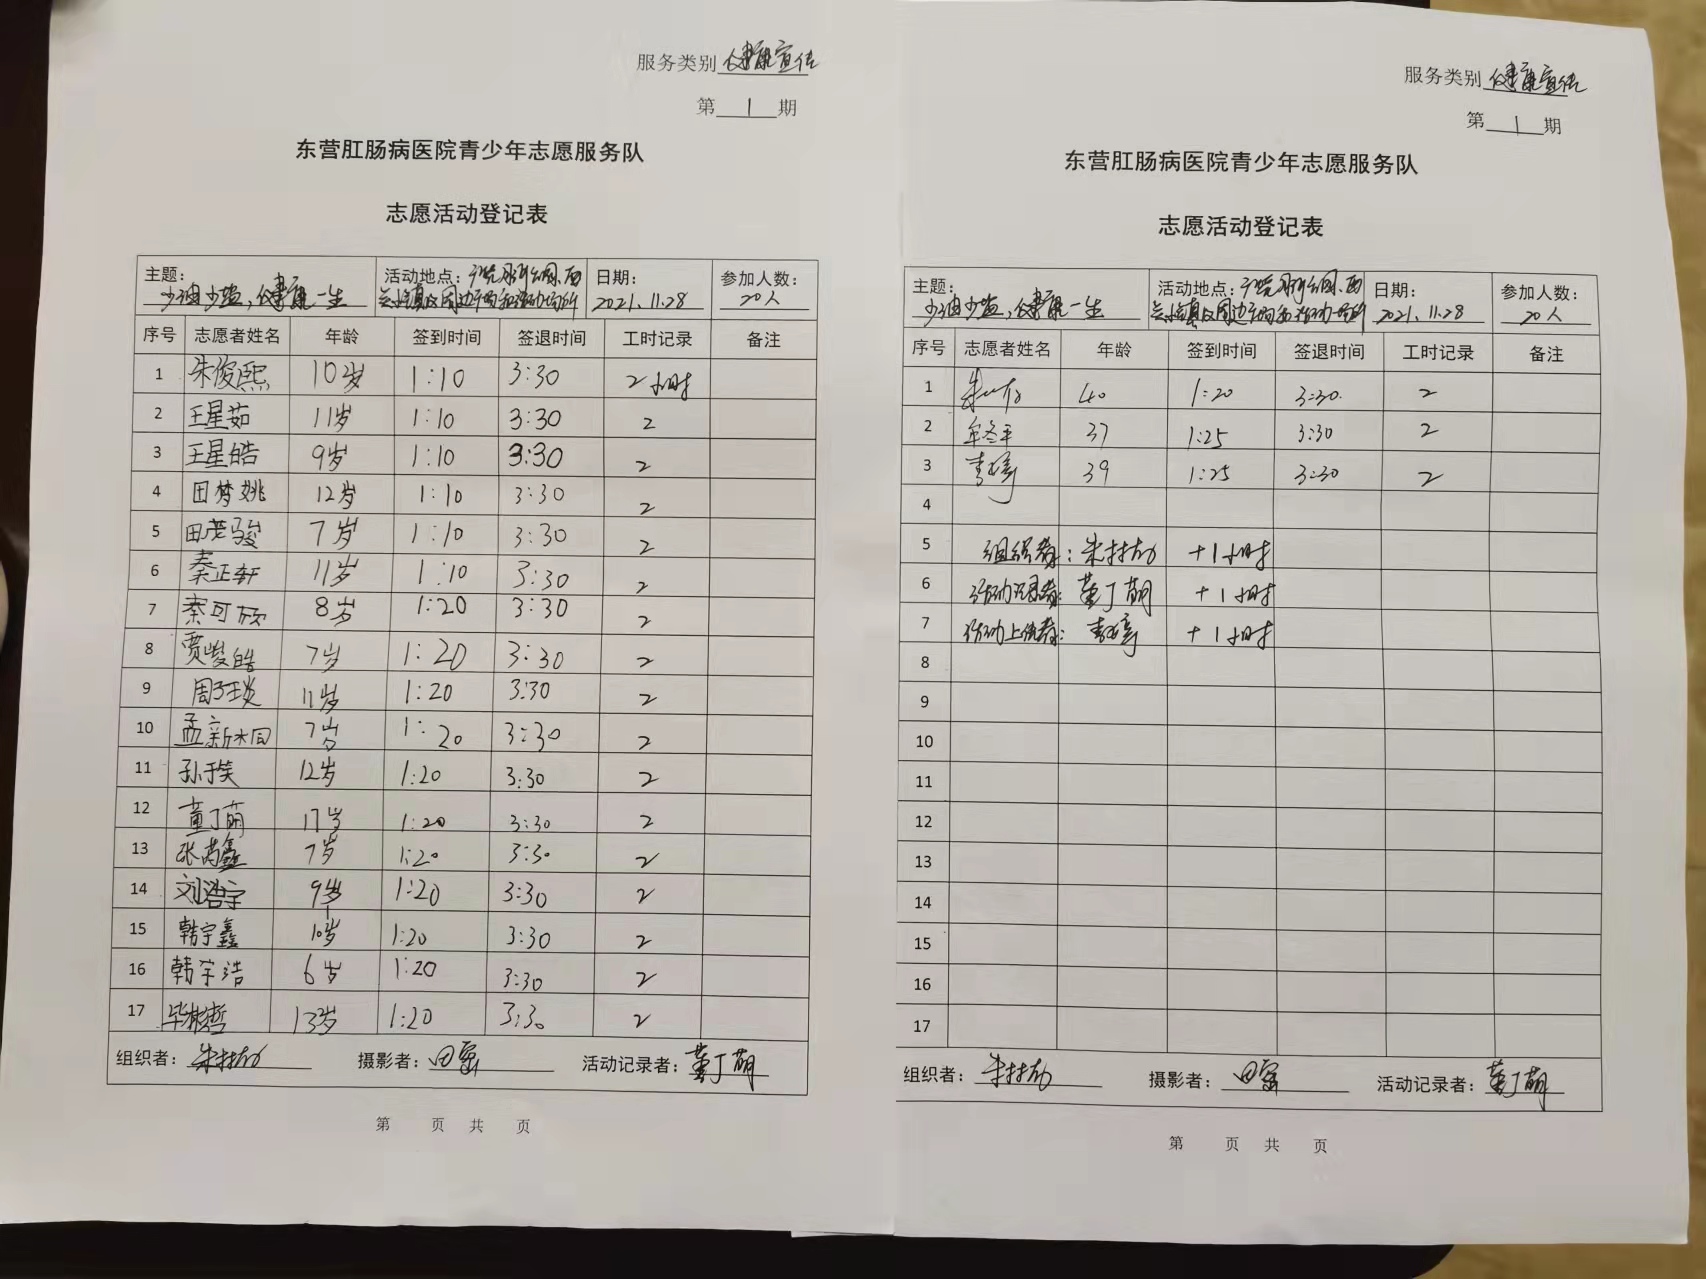 服务类别 健康宣传
第 1 期
东营肛肠病医院青少年志愿服务队
志愿活动登记表
主题: 少油少盐,健康一生 活动地点: 日期: 2021.11.28 参加人数: 20人
序号 志愿者姓名 年龄 签到时间 签退时间 工时记录 备注
1 朱俊熙 10岁 1:10 3:30 2小时
2 王星茹 11岁 1:10 3:30 2
3 王星皓 9岁 1:10 3:30 2
4 田梦姚 12岁 1:10 3:30 2
5 田茂骏 7岁 1:10 3:30 2
6 秦正轩 11岁 1:10 3:30 2
7 秦可欣 8岁 1:20 3:30 2
8 贾峻皓 7岁 1:20 3:30 2
9 周子琰 11岁 1:20 3:30 2
10 孟新 7岁 1:20 3:30 2
11 孙于笑 12岁 1:20 3:30 2
12 董丁萌 17岁 1:20 3:30 2
13 张芮鑫 7岁 1:20 3:30 2
14 刘浩宇 9岁 1:20 3:30 2
15 韩宇鑫 10岁 1:20 3:30 2
16 韩宇浩 6岁 1:20 3:30 2
17 毕彬哲 13岁 1:20 3:30 2
组织者: 摄影者: 活动记录者: 董丁萌
第 页 共 页
服务类别 健康宣传
第 1 期
东营肛肠病医院青少年志愿服务队
志愿活动登记表
主题: 少油少盐,健康一生 活动地点: 日期: 2021.11.28 参加人数: 20人
序号 志愿者姓名 年龄 签到时间 签退时间 工时记录 备注
1 40 1:20 3:30. 2
2 牟冬平 37 1:25 3:30 2
3 39 1:25 3:30 2
4
5 组织者: +1小时
6 活动记录者: 董丁萌 +1小时
7 活动上传者: +1小时
8
9
10
11
12
13
14
15
16
17
组织者: 摄影者: 活动记录者: 董丁萌
第 页 共 页